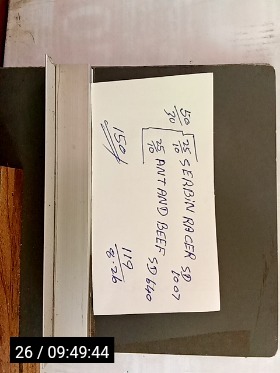 50/30 [ 25/10 SERBIN RACER SD 1007
25/10 ANT AND BEEF SD 640
150/
119
8.26
26 / 09:49:44